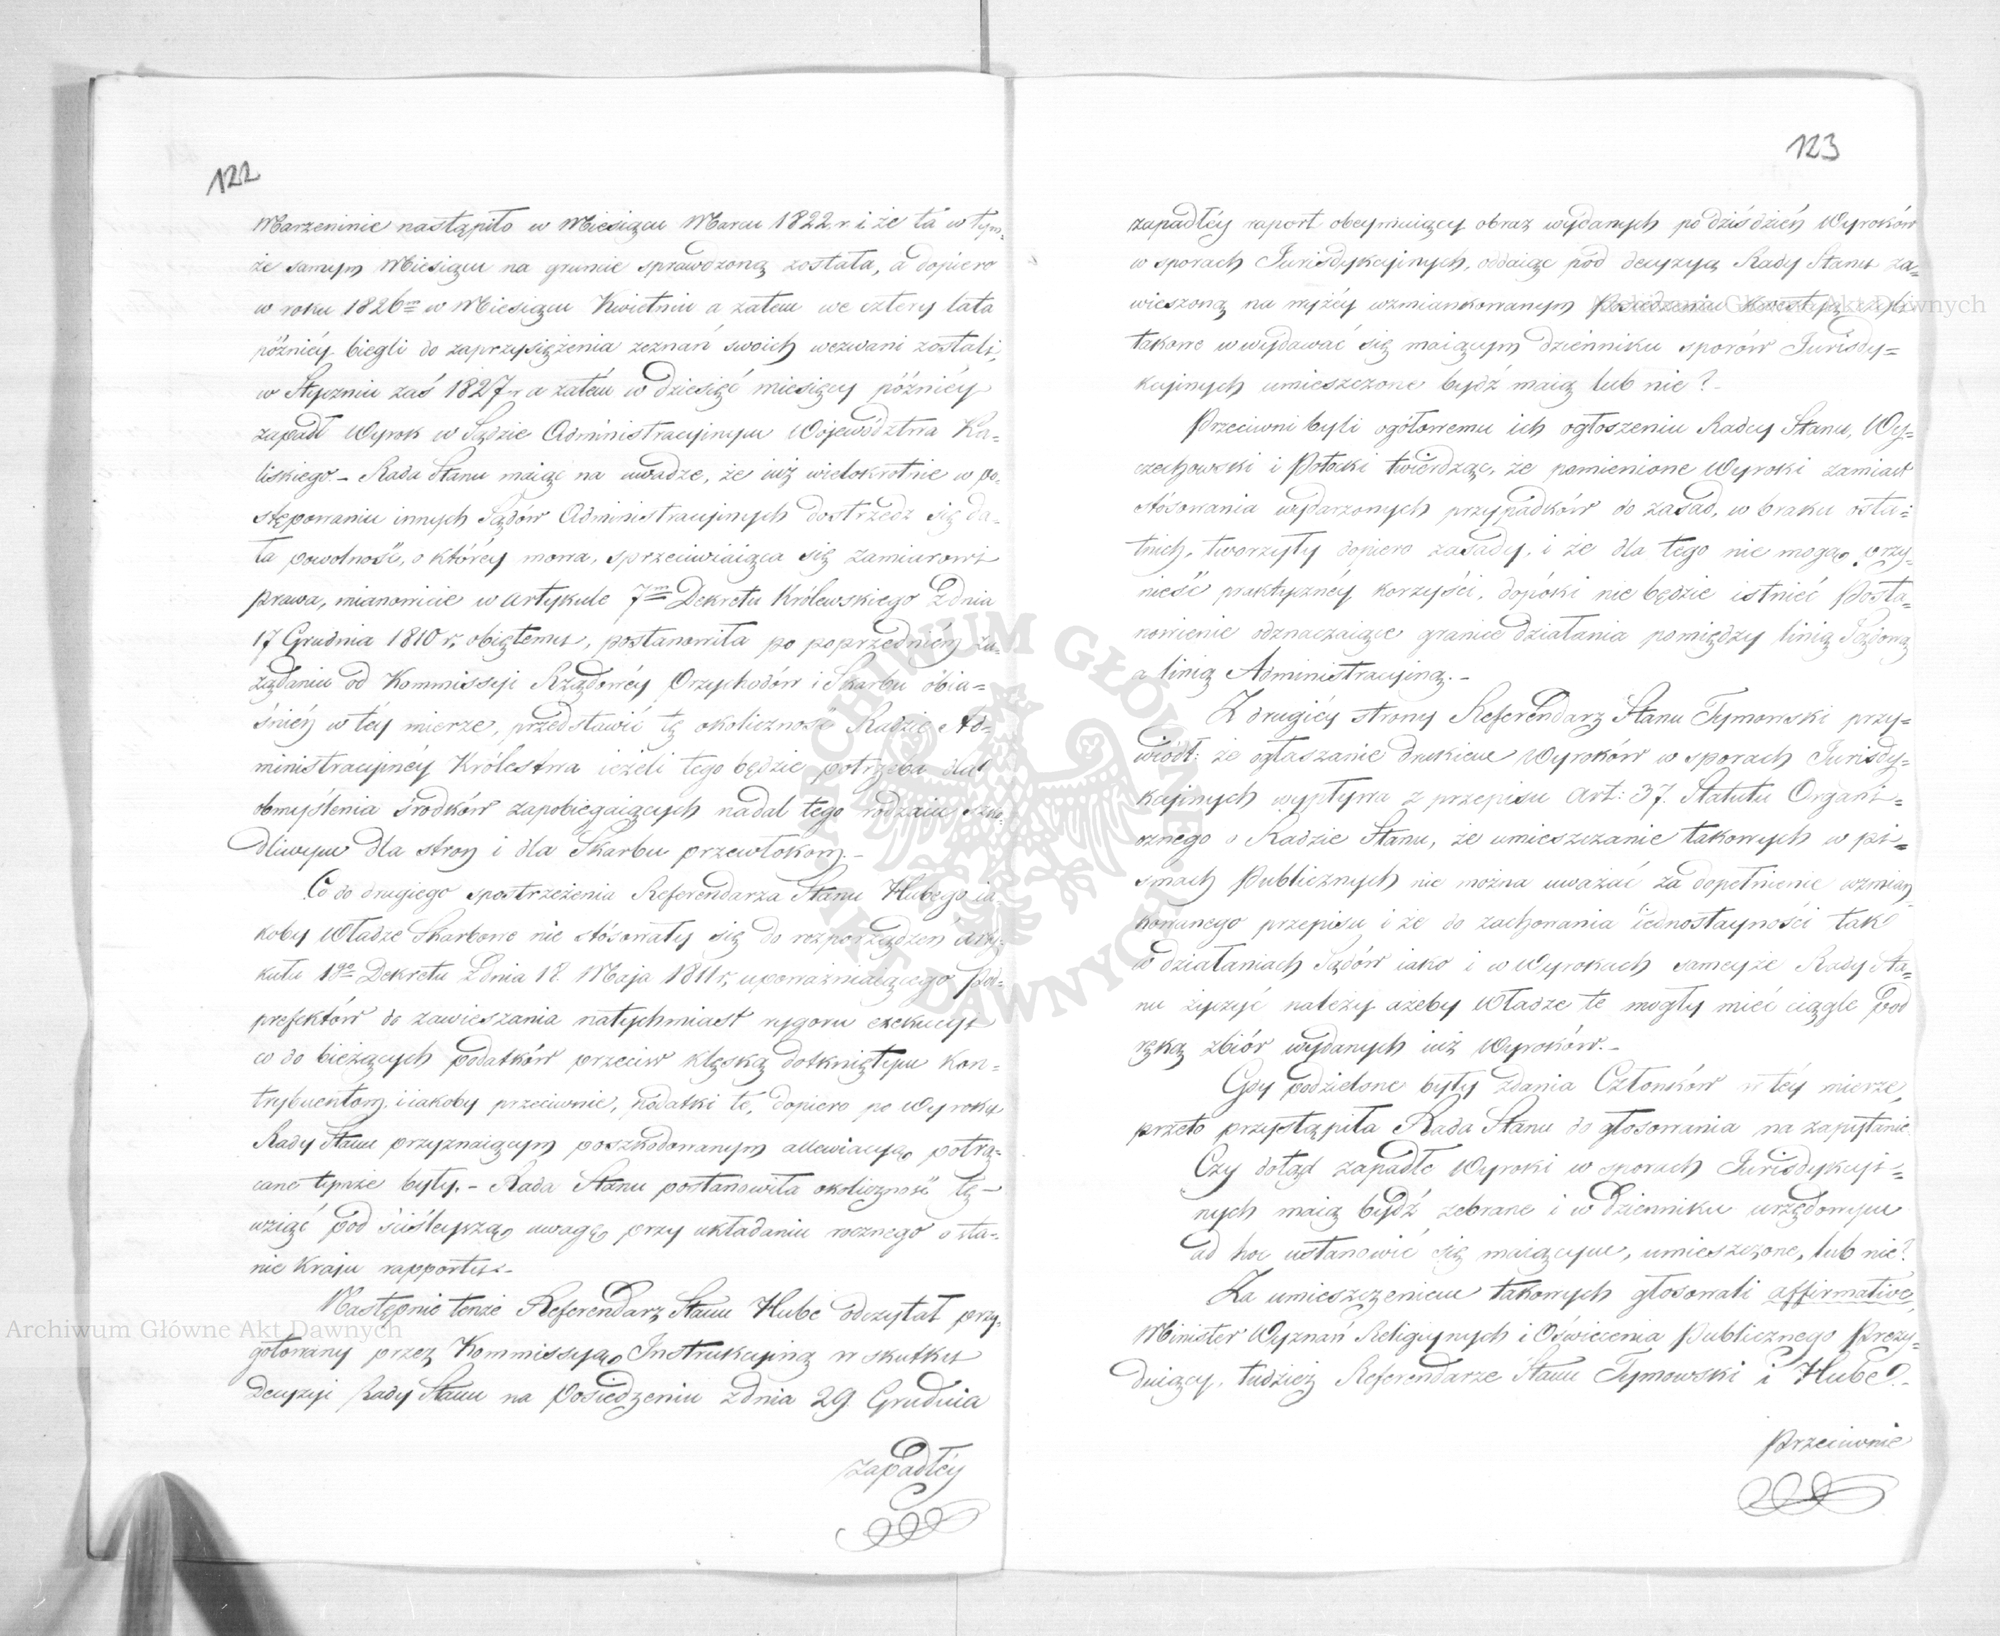 122
Marzeninie nastąpiło w Miesiącu Marcu 1822 r. i że ta w tym-
że samym Miesiącu na gruncie sprawdzoną została, a dopiero
w roku 1826m w Miesiącu Kwietniu a zatem we cztery lata
późniéy biegli do zaprzysiężenia zeznań swoich wezwani zostali,
w Styczniu zaś 1827 r. a zatém w dziesięć miesięcy późniéy
zapadł Wyrok w Sądzie Administracyjnym Województwa Ka-
liskiego. – Rada Stanu maiąc na uwadze, że iuż wielokrotnie w po-
stępowaniu innych Sądów Administracyjnych dostrzedz się da-
ła powolność, o któréy mowa, sprzeciwiaiąca się zamiarowi
prawa, mianowicie w artykule 7m Dekretu Królewskiego z dnia
17 Grudnia 1810 r. obiętemu, postanowiła po poprzedniém za-
żądaniu od Kommissyi Rządowéy Przychodów i Skarbu obia-
śnień w téy mierze, przedstawić tę okoliczność Radzie Ad-
ministracyjnéy Królestwa ieżeli tego będzie potrzeba dla
obmyślenia środków zapobiegaiących nadal tego rodzaiu szko-
dliwym dla stron i dla Skarbu przewłokom. –
Co do drugiego spostrzeżenia Referendarza Stanu Hubego ia-
koby Władze Skarbowe nie stósowały się do rozporządzeń Arty-
kułu 1go Dekretu z dnia 18 Maja 1811 r. upoważniaiącego Pod-
prefektów do zawieszania natychmiast rygoru exekucyi
co do bieżących podatków przeciw klęską dotkniętym kon-
trybuentom, i iakoby przeciwnie, podatki te, dopiero po Wyroku
Rady Stanu przyznaiącym poszkodowanym allewiacyą potrą-
cane tymże były. – Rada Stanu postanowiła okoliczność tę –
wziąć pod ściśleyszą uwagę przy układaniu rocznego o sta-
nie Kraju rapportu. –
Następnie tenże Referendarz Stanu Hube odczytał przy-
gotowany przez Kommissyą Instrukcyjną w skutku
decyzyi Rady Stanu na Posiedzeniu z dnia 29 Grudnia
zapadłéy
123
zapadłéy raport obeymuiący obraz wydanych po dziś dzień Wyroków
w sporach Jurisdykcyjnych, oddaiąc pod decyzyą Rady Stanu za-
wieszoną na wyżéy wzmiankowanym Posiedzeniu kwestyą czyli
takowe w wydawać się maiącym dzienniku sporów Jurisdy-
kcyjnych umieszczone bydź maią lub nie? –
Przeciwni byli ogółowemu ich ogłoszeniu Radcy Stanu, Wy-
czechowski i Potocki twierdząc, że pomienione Wyroki zamiast
stósowania wydarzonych przypadków do zasad, w braku osta-
tnich, tworzyły dopiero zasady, i że dla tego nie mogą przy-
nieść praktycznéy korzyści, dopóki nie będzie istnieć Posta-
nowienie odznaczaiące granice działania pomiędzy linią Sądową
a linią Administracyjną. –
Z drugiéy strony Referendarz Stanu Tymowski przy-
wiódł: że ogłaszanie drukiem Wyroków w sporach Jurisdy-
kcyjnych wypływa z przepisu art: 37. Statutu Organi-
cznego o Radzie Stanu, że umieszczanie takowych w pi-
smach Publicznych nie można uważać za dopełnienie wzmian-
kowanego przepisu i że do zachowania iednostayności tak
w działaniach Sądów iako i w Wyrokach sameyże Rady Sta-
nu życzyć należy ażeby Władze te mogły mieć ciągle pod
ręką zbiór wydanych iuż Wyroków. –
Gdy podzielone były zdania Członków w téy mierze,
przeto przystąpiła Rada Stanu do głosowania na zapytanie
Czy dotąd zapadłe Wyroki w sporach Jurisdykcyi-
nych maią bydź zebrane i w Dzienniku urzędowym
ad hoc ustanowić się maiącym, umieszczone, lub nie?
Za umieszczeniem takowych głosowali affirmative,
Minister Wyznań Religiynych i Oświecenia Publicznego Prezy-
duiący, tudzież Referendarze Stanu Tymowski i Hube. –
Przeciwnie
Archiwum Główne Akt Dawnych
Archiwum Główne Akt Dawnych
ARCHIWUM GŁÓWNE AKT DAWNYCH